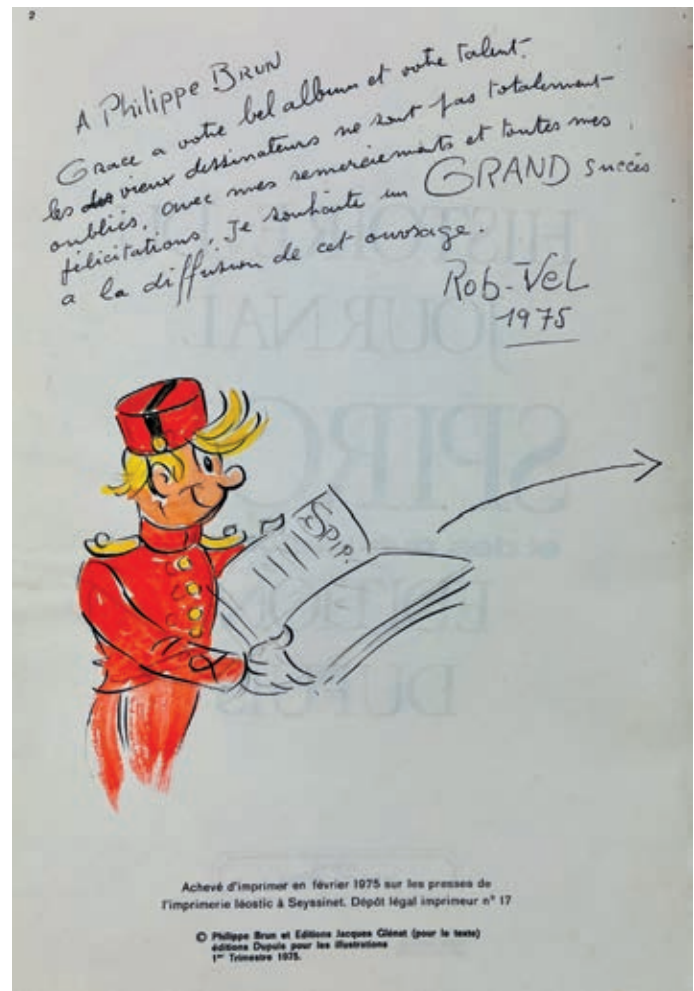 2
A Philippe BRUN
Grace a votre bel album et votre talent.
les des vieux dessinateurs ne sont pas totalement
oubliés, avec mes remerciements et toutes mes
félicitations, Je souhaite un GRAND succès
a la diffusion de cet ouvrage.
Rob-Vel
1975
SPIR.
Achevé d'imprimer en février 1975 sur les presses de
l'imprimerie léostic à Seyssinet. Dépôt légal imprimeur n° 17
© Philippe Brun et Editions Jacques Glénat (pour le texte)
éditions Dupuis pour les illustrations
1er Trimestre 1975.